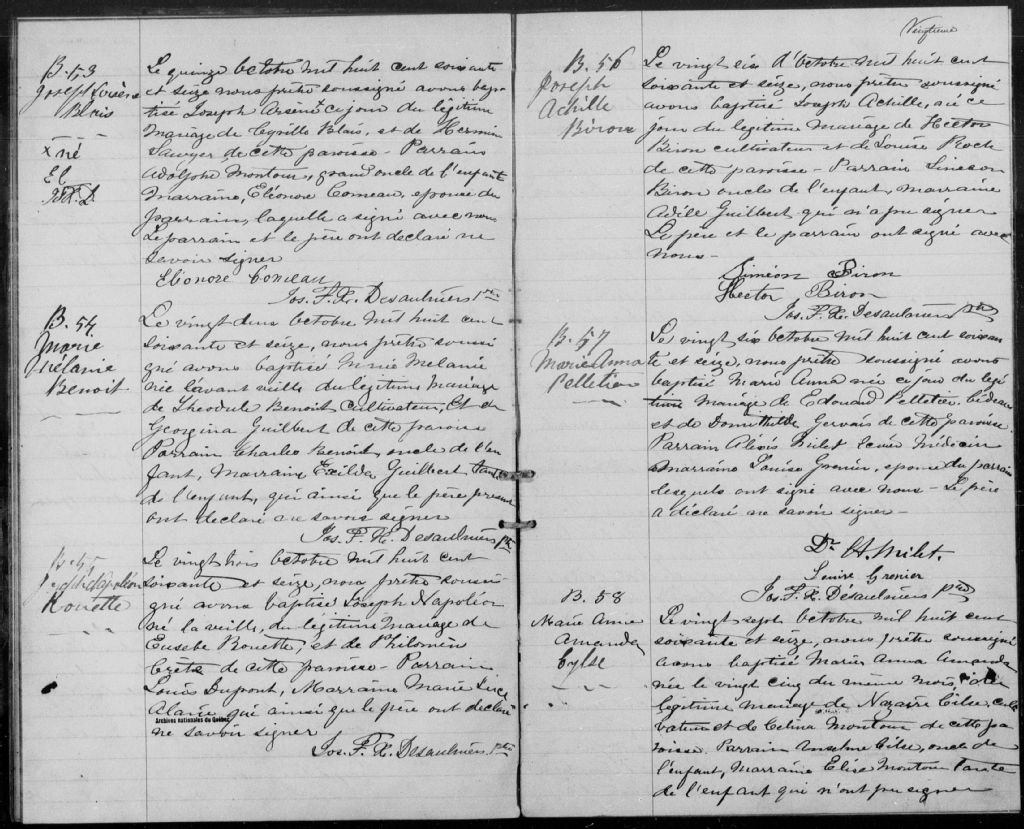 B. 53
Joseph
Blais
x né
El
J.F.X.D.
Le quinze octobre mil huit cent soixante
et seize nous prêtre soussigné avons bap
tisé Joseph Arsène x ce jour du légitime
mariage de Cyrille Blais, et de Hermin
Sawyer de cette paroisse - Parrain
Adolphe Montour, grand oncle de l'enfant
Marraine, Eléonore Comeau, épouse du
parrain, laquelle a signé avec nous
Le parrain et le père ont déclaré ne
savoir signer
Eléonore Comeau
Jos. F. X. Desaulniers ptre
B. 54
Marie
Mélanie
Benoit
Le vingt deux octobre mil huit cent
soixante et seize, nous prêtre soussi
gné avons baptisé Marie Mélanie
née l'avant veille du légitime mariage
de Théodule Benoit cultivateur, et de
Georgina Guilbert de cette paroisse
Parrain Charles Benoit oncle de l'en
fant, Marraine Exilda Guilbert tante
de l'enfant, qui ainsi que le père présent
ont déclaré ne savoir signer
Jos. F. X. Desaulniers ptre
B. 55
Joseph Napoléon
Rouette
Le vingt trois octobre mil huit cent
soixante et seize, nous prêtre soussi
gné avons baptisé Joseph Napoléon
né la veille, du légitime mariage de
Eusebe Rouette, et de Philomène
de cette paroisse - Parrain
Louis Dupont, Marraine Marie Luce
Alarie qui ainsi que le père ont déclaré
Archives nationales du Québec
ne savoir signer
Jos. F. X. Desaulniers ptre
Vingtième
B. 56
Joseph
Achille
Biron
Le vingt six d'octobre mil huit cent
soixante et seize, nous prêtre soussigné
avons baptisé Joseph Achille, né ce
jour du légitime mariage de Hector
Biron cultivateur et de Louise Roch
de cette paroisse - Parrain Siméon
Biron oncle de l'enfant, marraine
Adèle Guilbert qui n'a pu signer
Le père et le parrain ont signé avec
nous -
Siméon Biron
Hector Biron
Jos. F. X. Desaulniers ptre
B. 57
Marie Anna
Pelletier
Le vingt six octobre mil huit cent soixan
te et seize, nous prêtre soussigné avons
baptisé Marie Anna née ce jour du légi
time mariage de Edouard Pelletier bédeau
et de Domithilde Gervais de cette paroisse
Parrain Milet Ecuier Médecin
Marraine Louise Grenier, épouse du parrain
lesquels ont signé avec nous - Le père
a déclaré ne savoir signer -
Dr. A. Milet
Louise Grenier
Jos. F. X. Desaulniers ptre
B. 58
Marie Anna
Amanda
Cylse
Le vingt sept octobre mil huit cent
soixante et seize, nous prêtre soussigné
avons baptisé Marie Anna Amanda
née le vingt cinq du même mois, du
légitime mariage de Nazaire Cilse, culti
vateur et de Celina Montour de cette pa
roisse. Parrain Anselme Cilse, oncle de
l'enfant, Marraine Elise Montour tante
de l'enfant qui n'ont pu signer